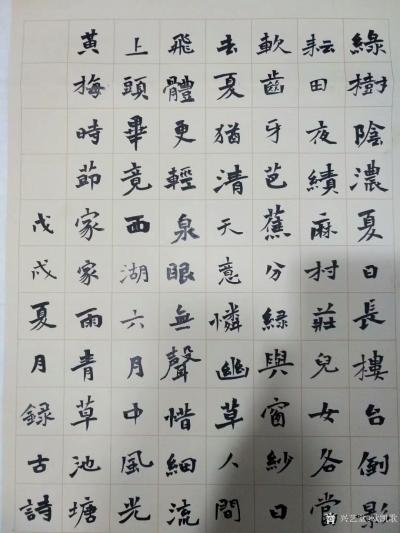 綠樹陰濃夏日長樓台倒影
耘田夜績麻村莊兒女各當
軟齒牙芭蕉分綠與窗紗日
去夏猶清天意憐幽草人間
飛體更輕泉眼無聲惜細流
上頭畢竟西湖六月中風光
黃梅時節家家雨青草池塘
戊戌夏月錄古詩
兴艺堂 欧凯歌